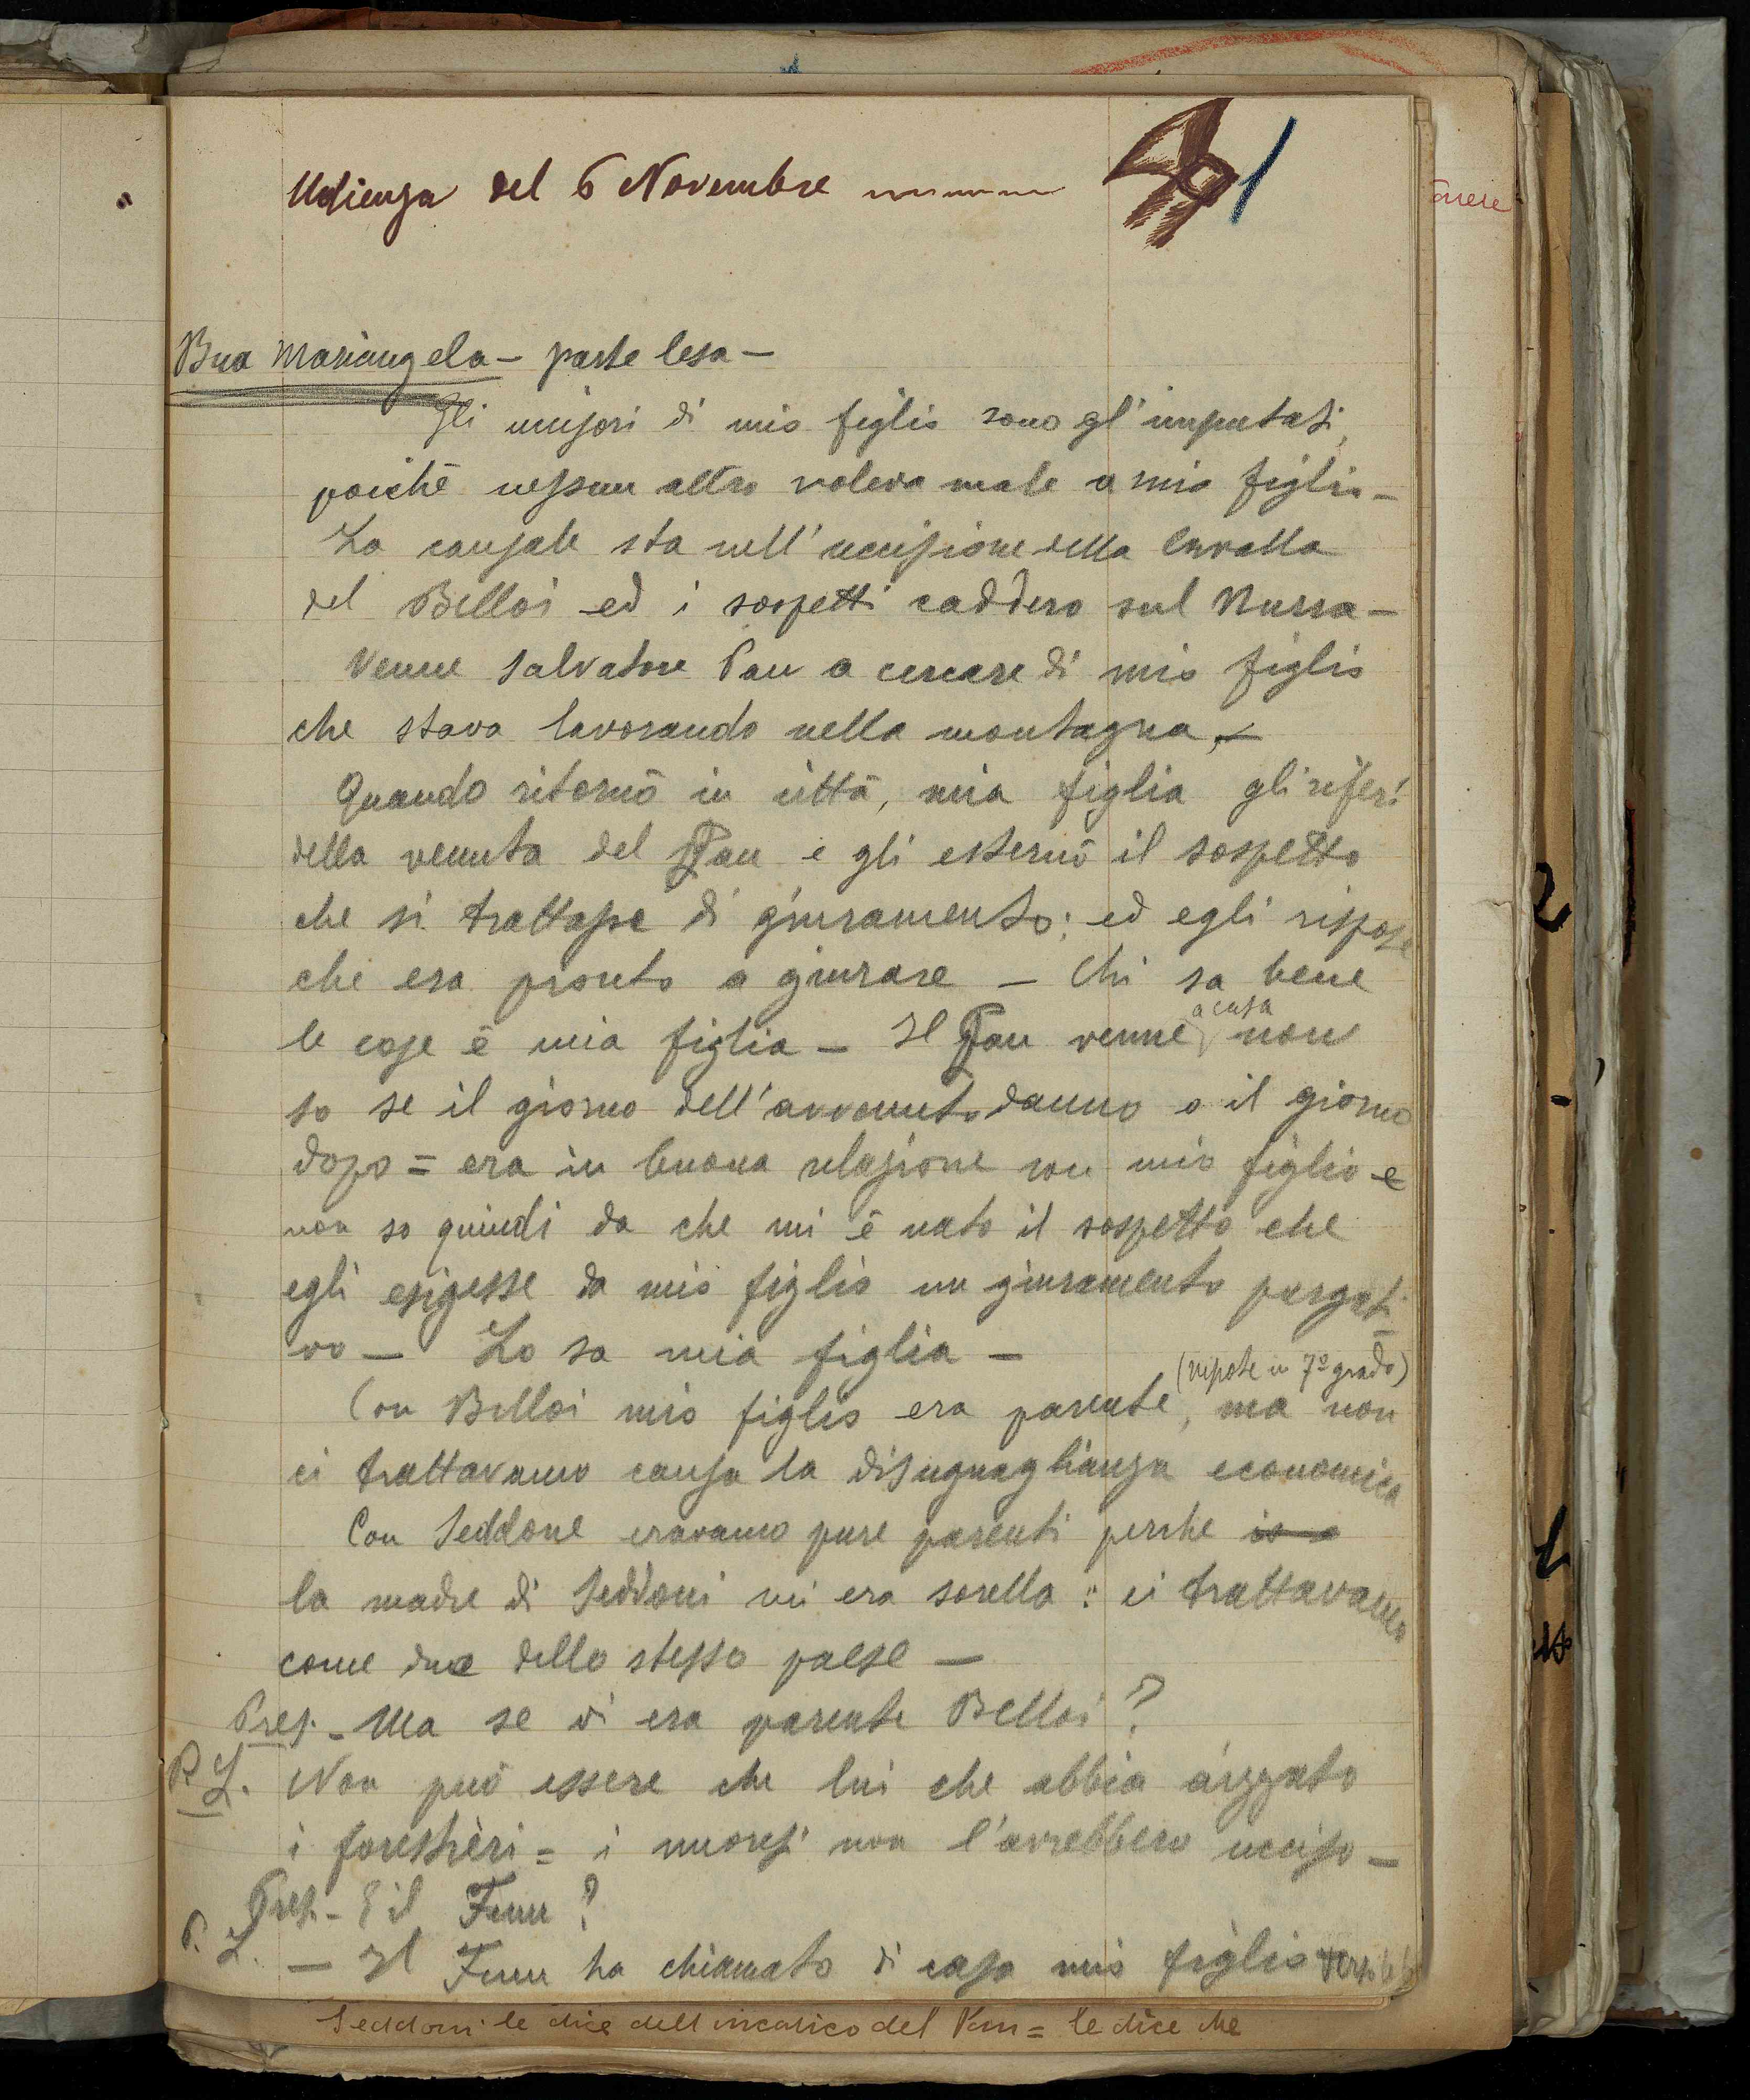 Udienza del 6 Novembre
1
Bua Mariangela - parte lesa -
Gli uccisori di mio figlio sono gl'imputati,
poichè nessun altro voleva male a mio figlio -
La causale sta nell'uccisione della cavalla
del Belloi ed i sospetti caddero sul Murra -
Venne Salvatore Pau a cercare di mio figlio
che stava lavorando nella montagna, -
Quando ritornò in città, mia figlia gli riferì
della venuta del Pau e gli esternò il sospetto
che si trattasse di giuramento; ed egli rispose
che era pronto a giurare - Chi sa bene
le cose è mia figlia - Il Pau venne a casa non
so se il giorno dell'avvenuto danno o il giorno
dopo = era in buona relazione con mio figlio e
non so quindi da che mi è nato il sospetto che
egli esigesse da mio figlio un giuramento purgati-
vo - Lo sa mia figlia -
Con Belloi mio figlio era parente (nipote in 7º grado), ma non
ci trattavamo causa la disuguaglianza economica
Con Seddone eravamo pure parenti perche
la madre di Seddoni mi era sorella : ci trattavamo
come due dello stesso paese -
Pres. - Ma se vi era parente Belloi?
P. L. Non può essere che lui che abbia aizzato
i forestieri = i nuoresi non l'avrebbero ucciso -
Pres. - E il Funu?
P. L. - Il Funu ha chiamato di casa mio figlio verso le
Seddoni le dice dell'incarico del Pau = le dice che